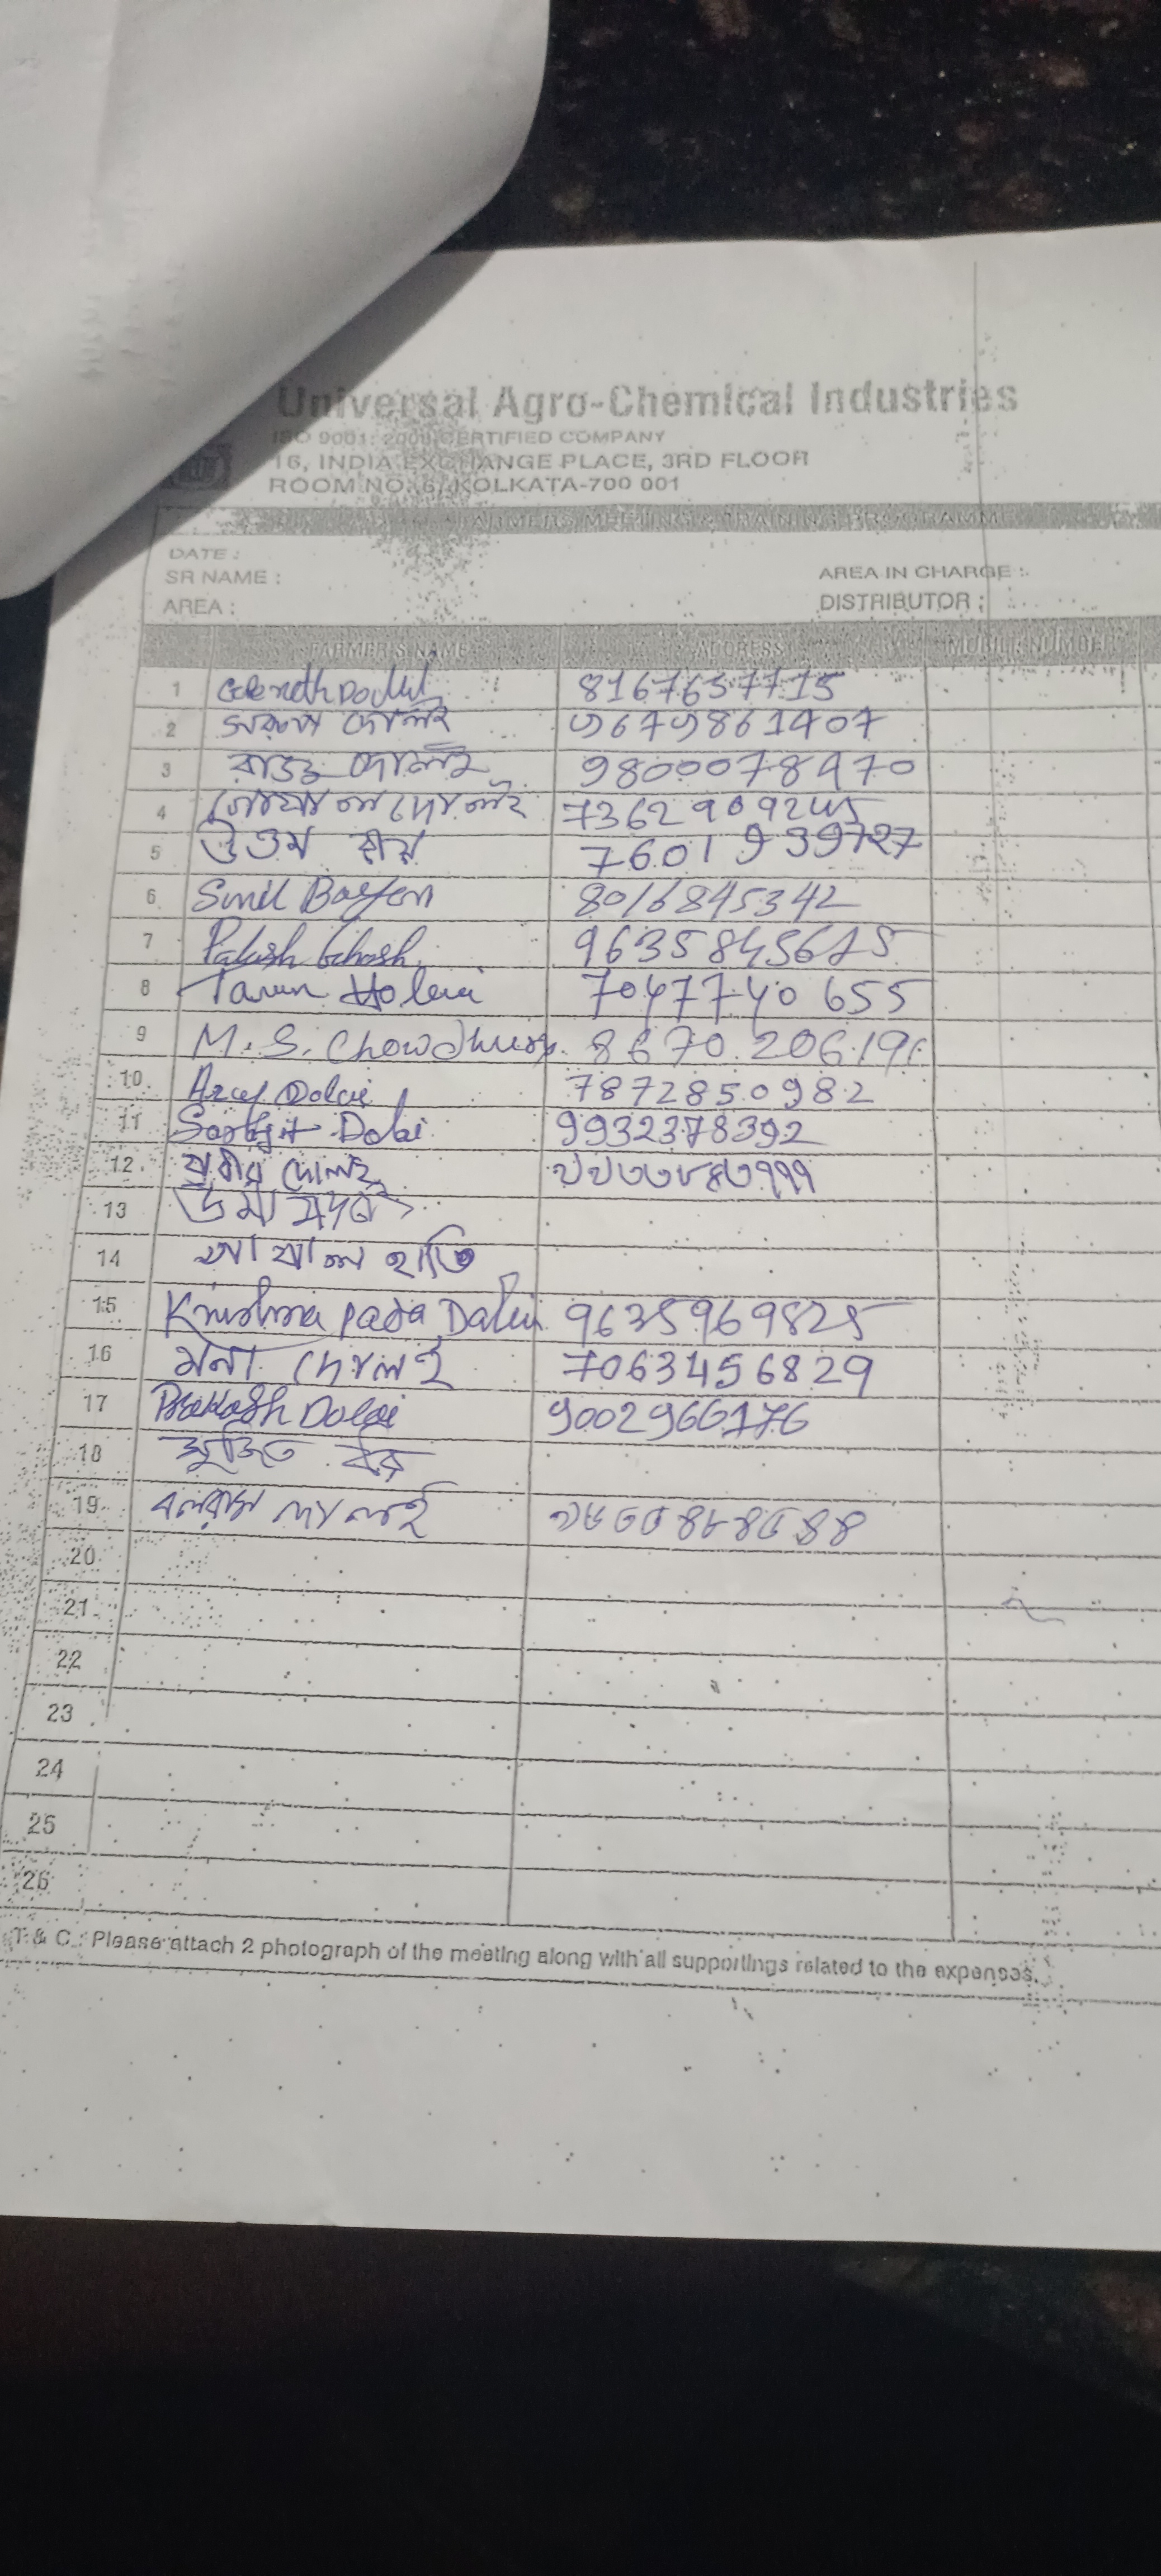 Universal Agro-Chemical Industries
ISO 9001: 2008 CERTIFIED COMPANY
16, INDIA EXCHANGE PLACE, 3RD FLOOR
ROOM NO. 6, KOLKATA-700 001
FARMERS MEETING & TRAINING PROGRAMM
DATE :
SR NAME :
AREA IN CHARGE :
AREA :
DISTRIBUTOR :
FARMER'S NAME ADDRESS MOBILE NUMBER
1 8167637715
2 দোলই
3 দোলই 9800078970
4 গোপাল দোলই
5 উত্তম রায় 7601939727
6 Sunil 8016845342
7 Palash Ghosh 9635845675
8 Tarun Holui 7047740655
9 M. S. Chowdhury
10 Dolai 7872850982
11 Dolai 9932378392
12 প্রবীর দোলই
13 উমা
14 হাতি
15 Krishna pada Dalui 9635969825
16 মনা দোলই 7063456829
17 Prakash Dolai 9002966176
18 সুজিত
19 বলরাম দোলই
20
21
22
23
24
25
26
T & C : Please attach 2 photograph of the meeting along with all supportings related to the expenses.